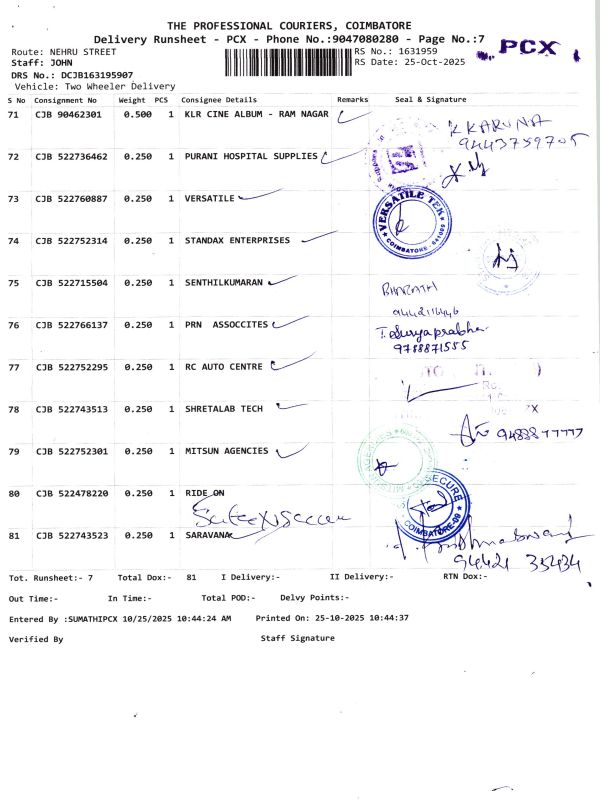 THE PROFESSIONAL COURIERS, COIMBATORE
Delivery Runsheet - PCX - Phone No.:9047080280 - Page No.:7
PCX
Route: NEHRU STREET
RS No.: 1631959
Staff: JOHN
RS Date: 25-Oct-2025
DRS No.: DCJB163195907
Vehicle: Two Wheeler Delivery
S No Consignment No Weight PCS Consignee Details Remarks Seal & Signature
71 CJB 90462301 0.500 1 KLR CINE ALBUM - RAM NAGAR
K KARUNA
9443759705
72 CJB 522736462 0.250 1 PURANI HOSPITAL SUPPLIES
73 CJB 522760887 0.250 1 VERSATILE
VERSATILE TEK
COIMBATORE - 641009
74 CJB 522752314 0.250 1 STANDAX ENTERPRISES
75 CJB 522715504 0.250 1 SENTHILKUMARAN
BHARATH
9442116446
76 CJB 522766137 0.250 1 PRN ASSOCCITES
T. Suryaprabha
9788871555
77 CJB 522752295 0.250 1 RC AUTO CENTRE
78 CJB 522743513 0.250 1 SHRETALAB TECH
9488877777
79 CJB 522752301 0.250 1 MITSUN AGENCIES
80 CJB 522478220 0.250 1 RIDE ON
SECURE
COIMBATORE-09
81 CJB 522743523 0.250 1 SARAVANA
94421 35434
Tot. Runsheet:- 7 Total Dox:- 81 I Delivery:- II Delivery:- RTN Dox:-
Out Time:- In Time:- Total POD:- Delvy Points:-
Entered By :SUMATHIPCX 10/25/2025 10:44:24 AM Printed On: 25-10-2025 10:44:37
Verified By Staff Signature